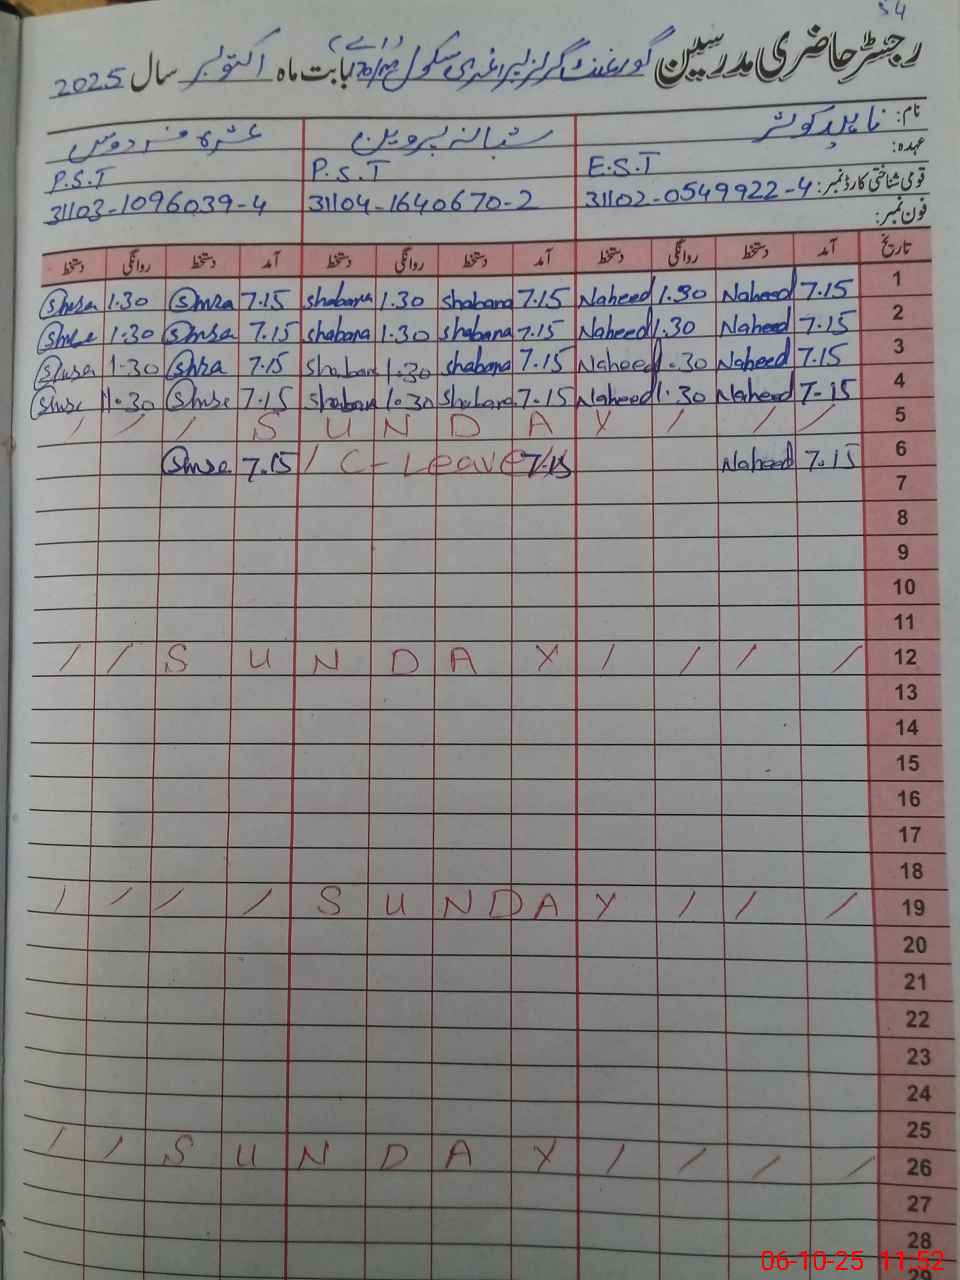 54
رجسٹر حاضری مدرسین گورنمنٹ گرلز ایلیمنٹری سکول بابت ماہ اکتوبر سال 2025
نام: ناہید کوثر شبانہ پروین عشرہ فردوس
عہدہ: E.S.T P.S.T P.S.T
قومی شناختی کارڈ نمبر: 31102-0549922-4 31104-1640670-2 31103-1096039-4
فون نمبر:
تاریخ آمد دستخط روانگی دستخط آمد دستخط روانگی دستخط آمد دستخط روانگی دستخط
1 7.15 Naheed 1.30 Naheed 7.15 Shabana 1.30 Shabana 7.15 1.30
2 7.15 Naheed 1.30 Naheed 7.15 shabana 1.30 shabana 7.15 1.30
3 7.15 Naheed 1.30 Naheed 7.15 shabana 1.30 Shabana 7.15 1.30
4 7.15 Naheed 1.30 Naheed 7.15 Shabana 1.30 Shabana 7.15 1.30
5 / / / S U N D A Y / / /
6 7.15 Naheed 7.15 C-Leave / 7.15
7
8
9
10
11
12 / / S U N D A Y / / / /
13
14
15
16
17
18
19 / / / / S U N D A Y / / /
20
21
22
23
24
25
26 / / S U N D A Y / / / /
27
28
29
06-10-25 11:52